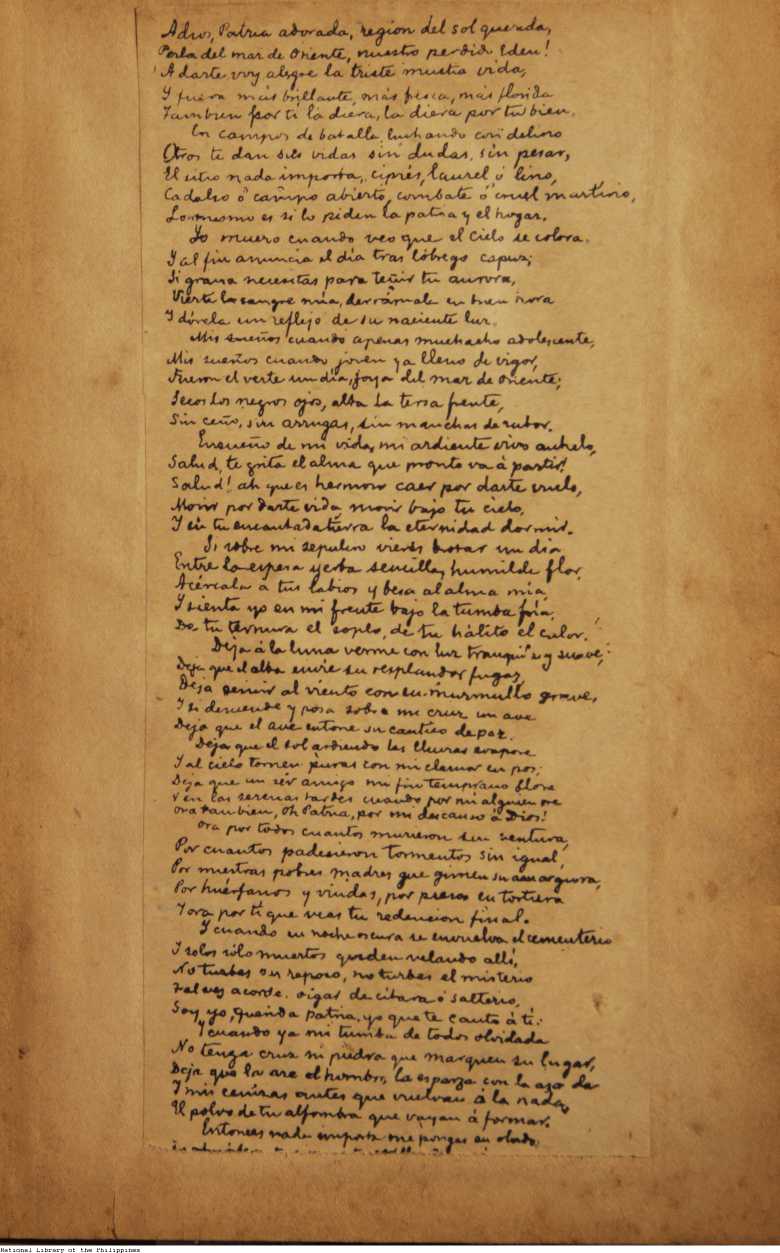 Adios, Patria adorada, region del sol querida,
Perla del mar de Oriente, nuestro perdido Eden!
A darte voy alegre la triste mustia vida,
Y fuera más brillante, más fresca, más florida
Tambien por ti la diera, la diera por tu bien.
En campos de batalla, luchando con delirio
Otros te dan sus vidas sin dudas, sin pesar,
El sitio nada importa, ciprés, laurel ó lirio,
Cadalso ó campo abierto, combate ó cruel martirio,
Lo mismo es si lo piden la patria y el hogar.
Yo muero cuando veo que el cielo se colora
Y al fin anuncia el día tras lóbrego capuz;
Si grana necesitas para teñir tu aurora,
Vierte la sangre mía, derrámala en buen hora
Y dórela un reflejo de su naciente luz.
Mis sueños cuando apenas muchacho adolescente,
Mis sueños cuando joven ya lleno de vigor,
Fueron el verte un día, joya del mar de Oriente,
Secos los negros ojos, alta la tersa frente,
Sin ceño, sin arrugas, sin manchas de rubor.
Ensueño de mi vida, mi ardiente vivo anhelo,
Salud, te grita el alma que pronto va á partir!
Salud! ah que es hermoso caer por darte vuelo,
Morir por darte vida, morir bajo tu cielo,
Y en tu encantada tierra la eternidad dormir.
Si sobre mi sepulcro vieres brotar un dia
Entre la espesa yerba sencilla, humilde flor,
Acércala a tus labios y besa al alma mía,
Y sienta yo en mi frente bajo la tumba fría,
De tu ternura el soplo, de tu hálito el calor.
Deja á la luna verme con luz tranquila y suave,
Deja que el alba envíe su resplandor fugaz,
Deja gemir al viento con su murmullo grave,
Y si desciende y posa sobre mi cruz un ave
Deja que el ave entone su cantico de paz.
Deja que el sol ardiendo las lluvias evapore
Y al cielo tornen puras con mi clamor en pos;
Deja que un sér amigo mi fin temprano llore
Y en las serenas tardes cuando por mi alguien ore
Ora tambien, Oh Patria, por mi descanso á Dios!
Ora por todos cuantos murieron sin ventura,
Por cuantos padecieron tormentos sin igual,
Por nuestras pobres madres que gimen su amargura,
Por huérfanos y viudas, por presos en tortura
Y ora por tí que veas tu redencion final.
Y cuando en noche oscura se envuelva el cementerio
Y solos sólo muertos queden velando allí,
No turbes su reposo, no turbes el misterio
Tal vez acordes oigas de citara ó salterio,
Soy yo, querida Patria, yo que te canto á ti.
Y cuando ya mi tumba de todos olvidada
No tenga cruz ni piedra que marquen su lugar,
Deja que la are el hombre, la esparza con la azada
Y mis cenizas antes que vuelvan á la nada,
El polvo de tu alfombra que vayan á formar.
Entonces nada importa me pongas en olvido,
National Library of the Philippines